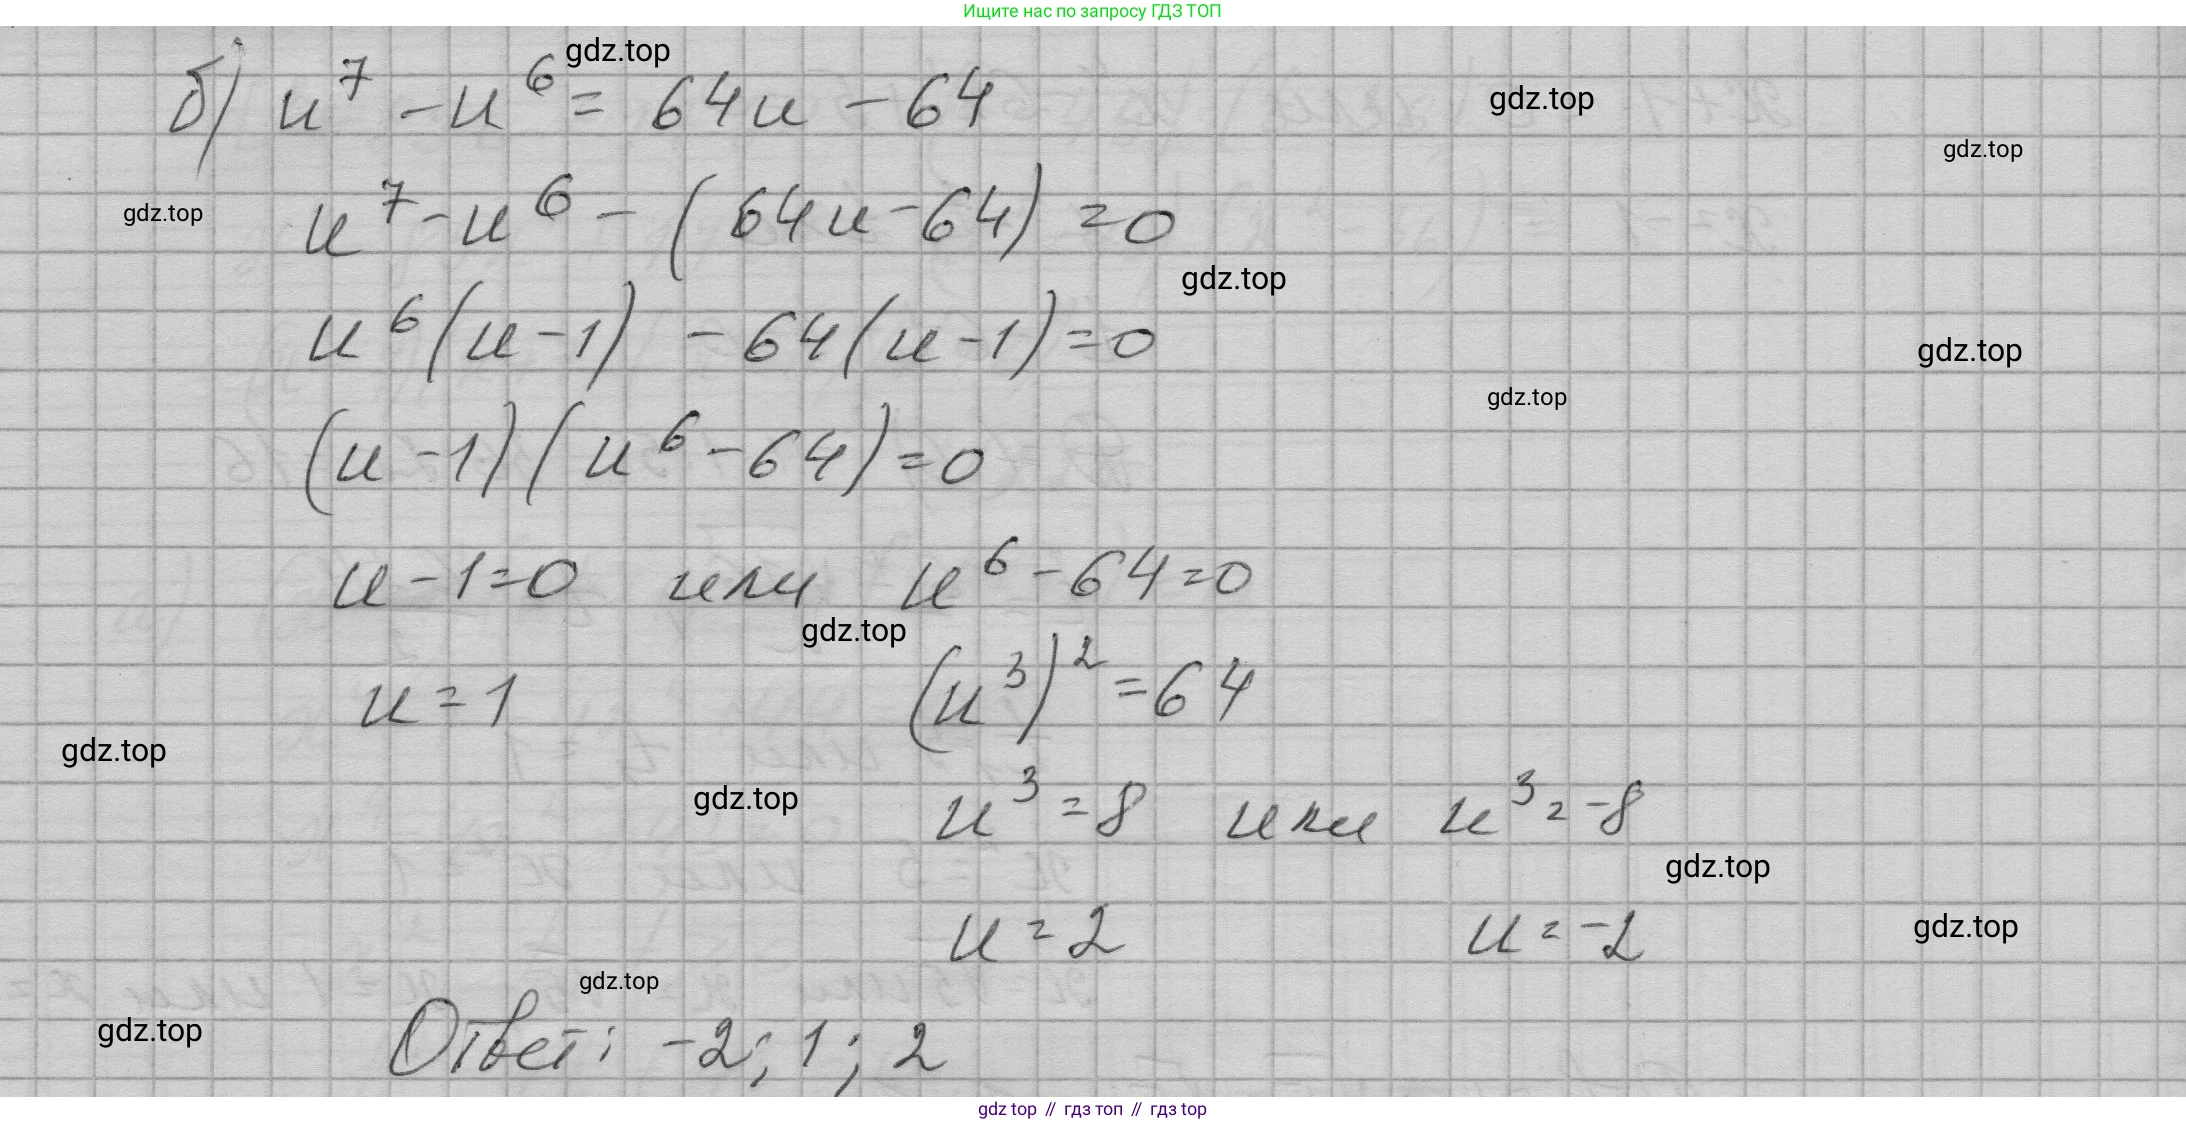 Ищите нас по запросу ГДЗ ТОП
gdz.top
б) u⁷ - u⁶ = 64u - 64
gdz.top
gdz.top
gdz.top
u⁷ - u⁶ - (64u - 64) = 0
gdz.top
u⁶(u - 1) - 64(u - 1) = 0
gdz.top
gdz.top
(u - 1)(u⁶ - 64) = 0
u - 1 = 0 или u⁶ - 64 = 0
gdz.top
u = 1 (u³)² = 64
gdz.top
gdz.top
u³ = 8 или u³ = -8
gdz.top
u = 2 u = -2
gdz.top
gdz.top
gdz.top
Ответ: -2; 1; 2
gdz top // гдз топ // гдз top